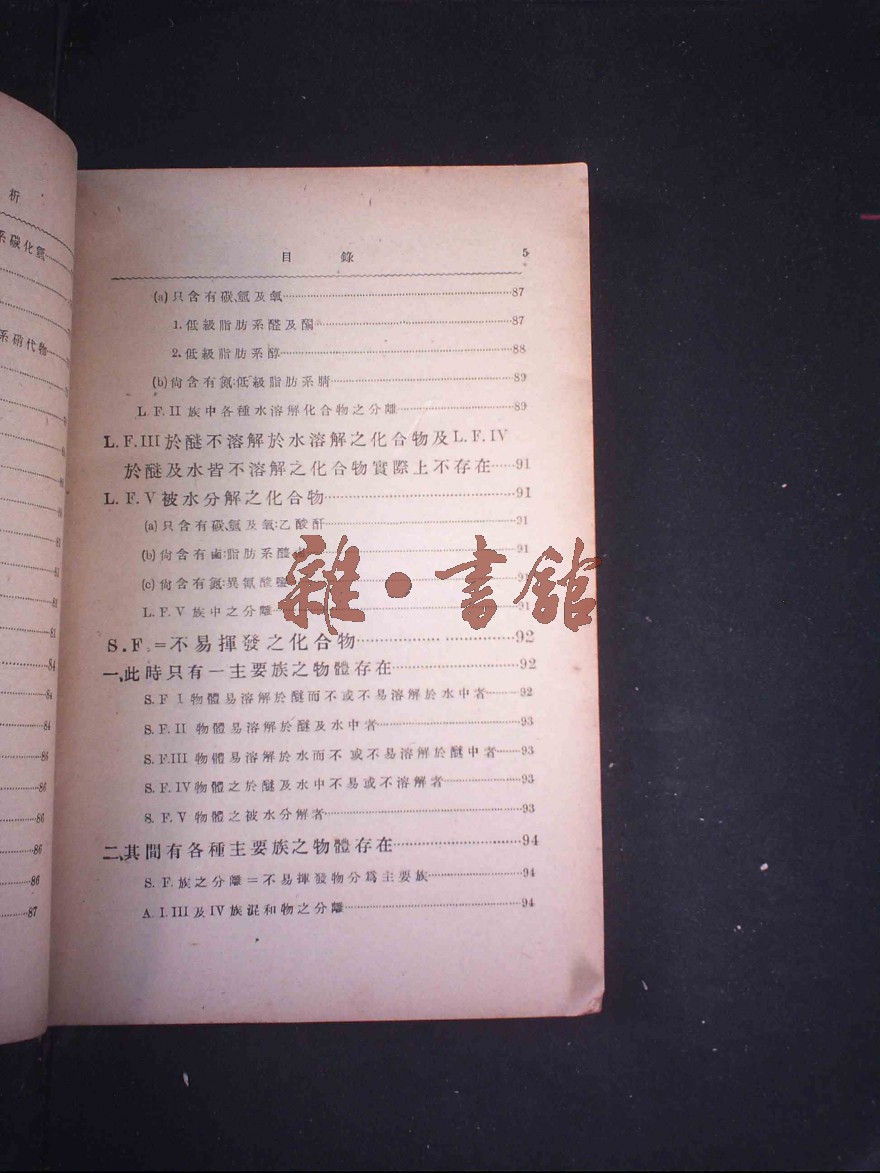 析
系碳化氫
系硝代物
81
81
84
84
84
86
86
86
86
86
87
目 錄 5
(a)只含有碳、氫及氧 87
1.低級脂肪系醛及酮 87
2.低級脂肪系醇 88
(b)尙含有氮:低級脂肪系腈 89
L. F. II 族中各種水溶解化合物之分離 89
L. F.III 於醚不溶解於水溶解之化合物及 L. F.IV
於醚及水皆不溶解之化合物實際上不存在 91
L. F. V 被水分解之化合物 91
(a)只含有碳、氫及氧:乙酸酐 91
(b)尙含有鹵:脂肪系醯 91
(c)尙含有氮:異氰酸 91
L. F. V 族中之分離 91
雜·書館
S. F. =不易揮發之化合物 92
一、此時只有一主要族之物體存在 92
S. F I 物體易溶解於醚而不或不易溶解於水中者 92
S. F. II 物體易溶解於醚及水中者 93
S. F.III 物體易溶解於水而不或不易溶解於醚中者 93
S. F. IV 物體之於醚及水中不易或不溶解者 93
S. F. V 物體之被水分解者 93
二、其間有各種主要族之物體存在 94
S. F. 族之分離=不易揮發物分爲主要族 94
A. I. III 及 IV 族混和物之分離 94